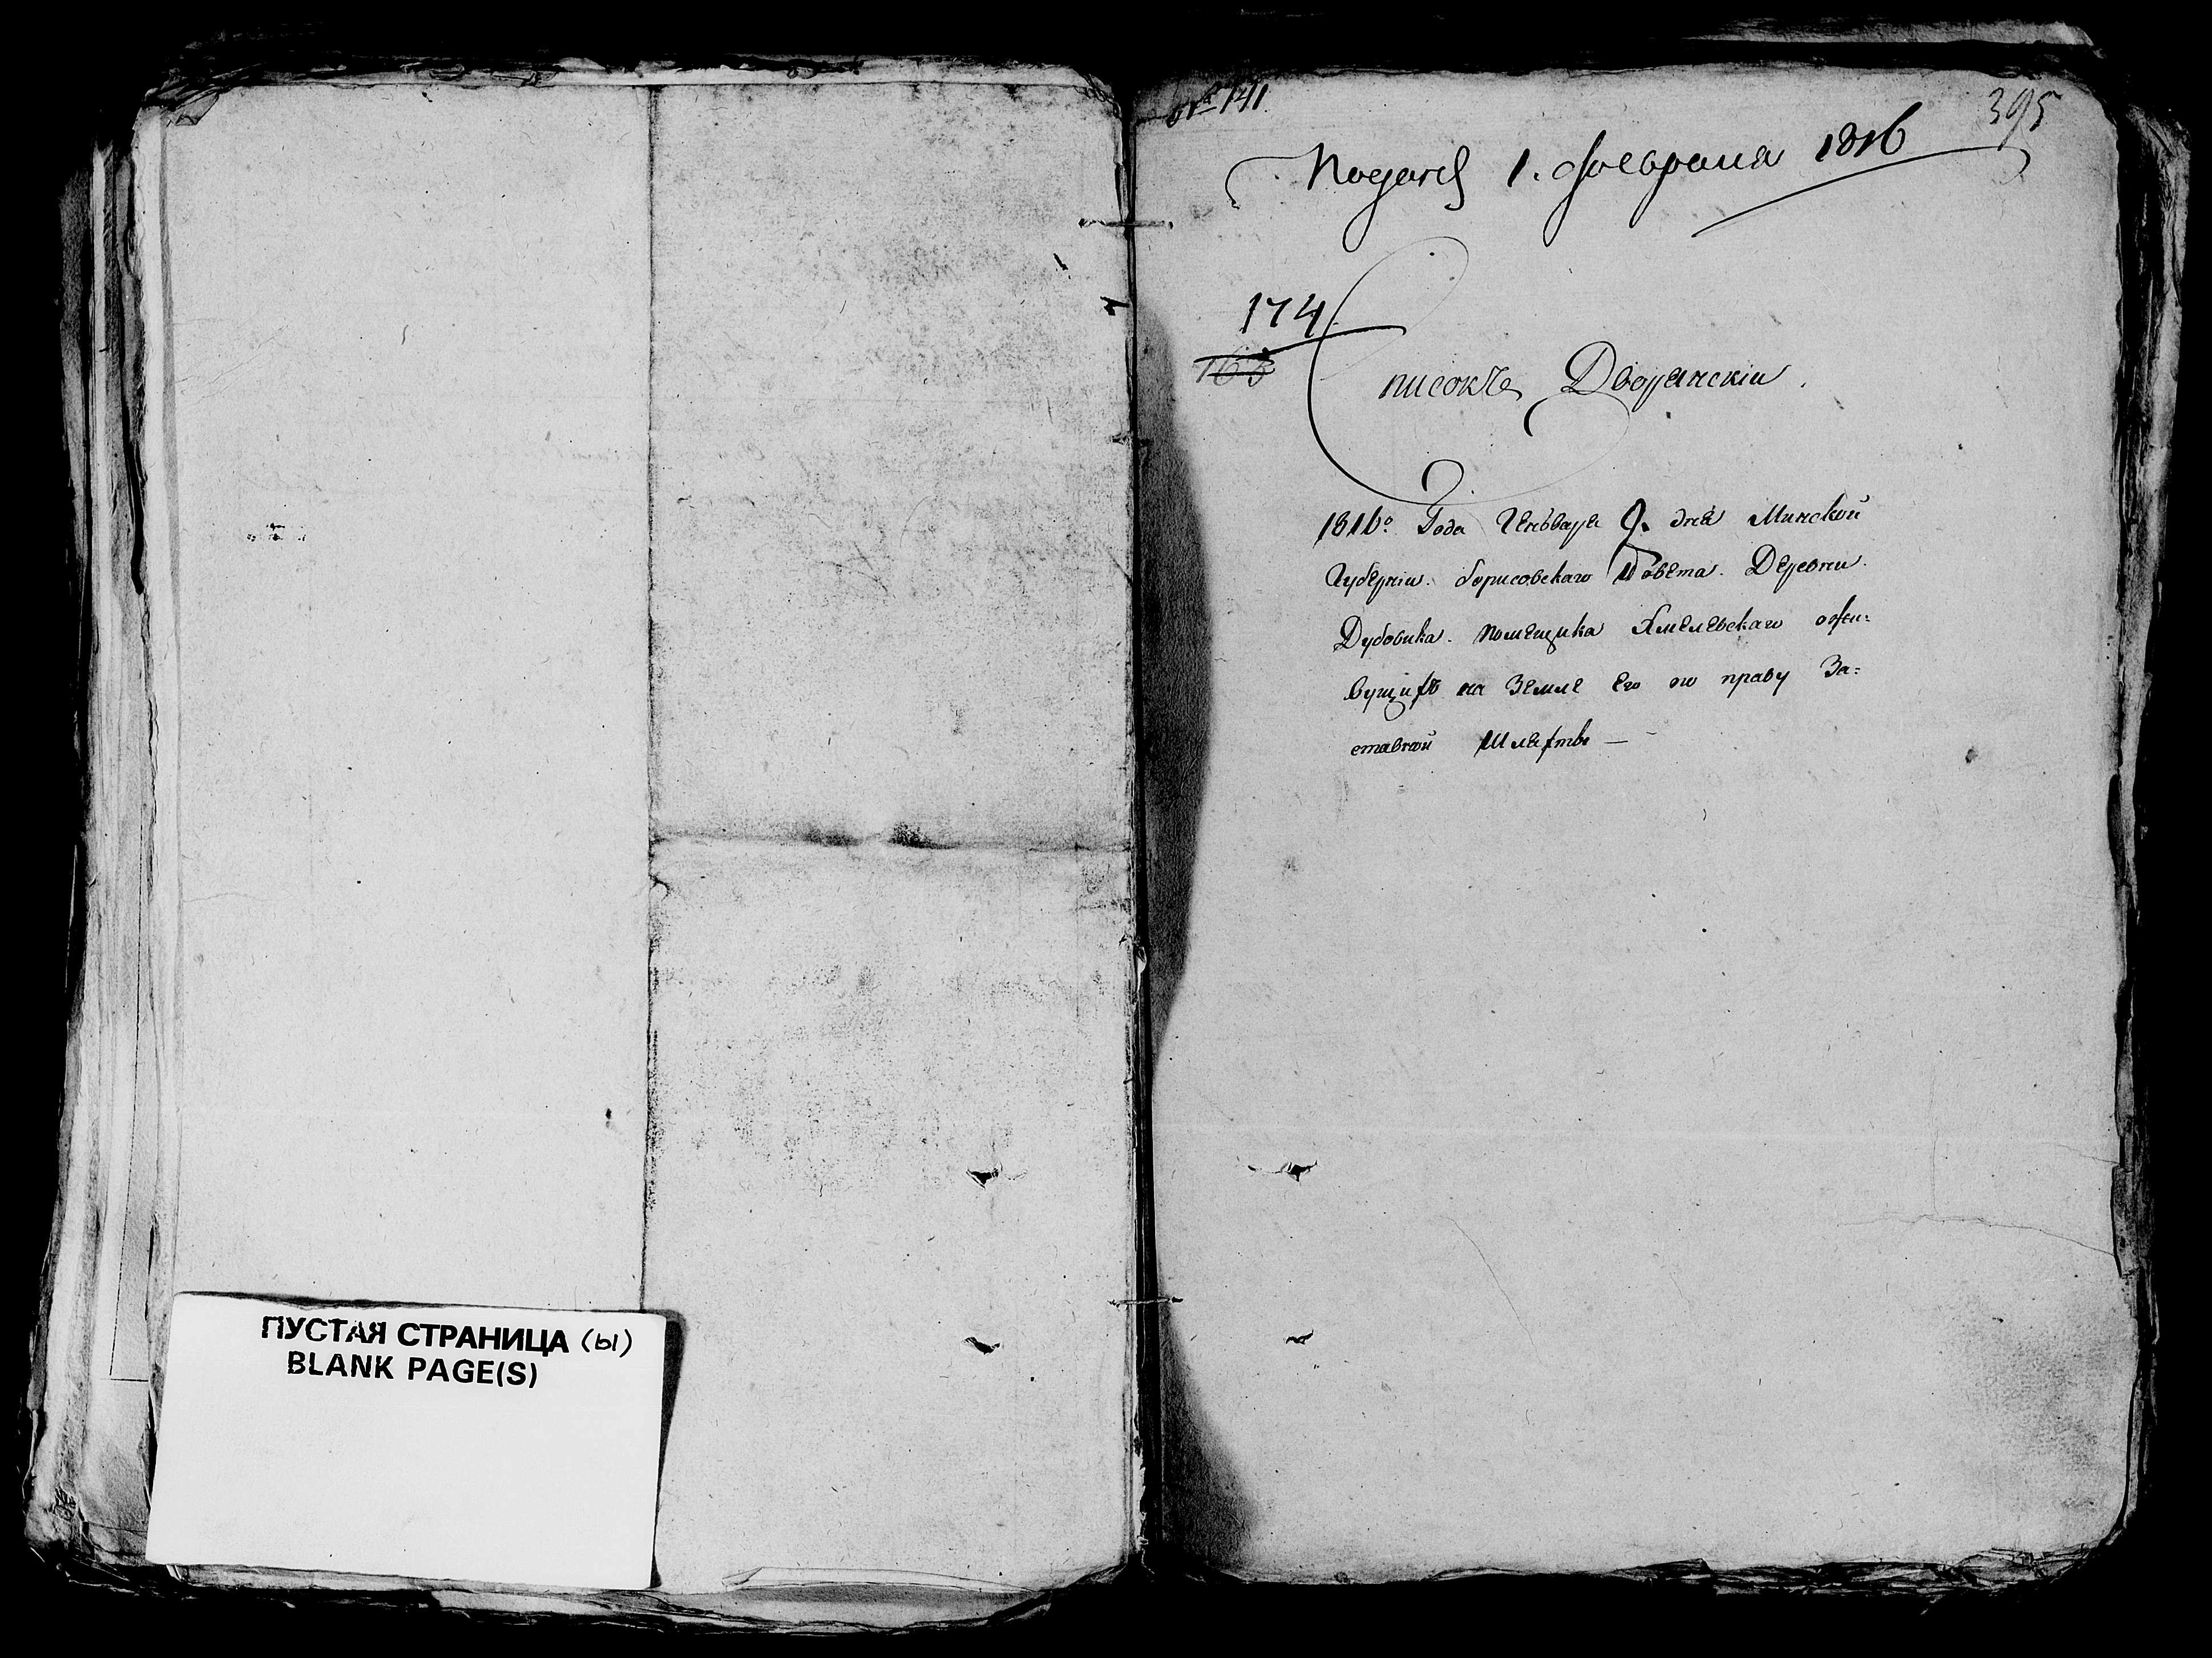 ПУСТАЯ СТРАНИЦА (ы)
BLANK PAGE(S)
№ 141.
395
1. февраля 1816
174
163
Списокъ Дворянскіи
1816го Года Генъваря 9. дня Минской
Губерніи. борисовскаго Повета. Деревни.
Дубовика. помещика Хмелевскаго
на Земле Его по праву За=
ставной Шляхты —